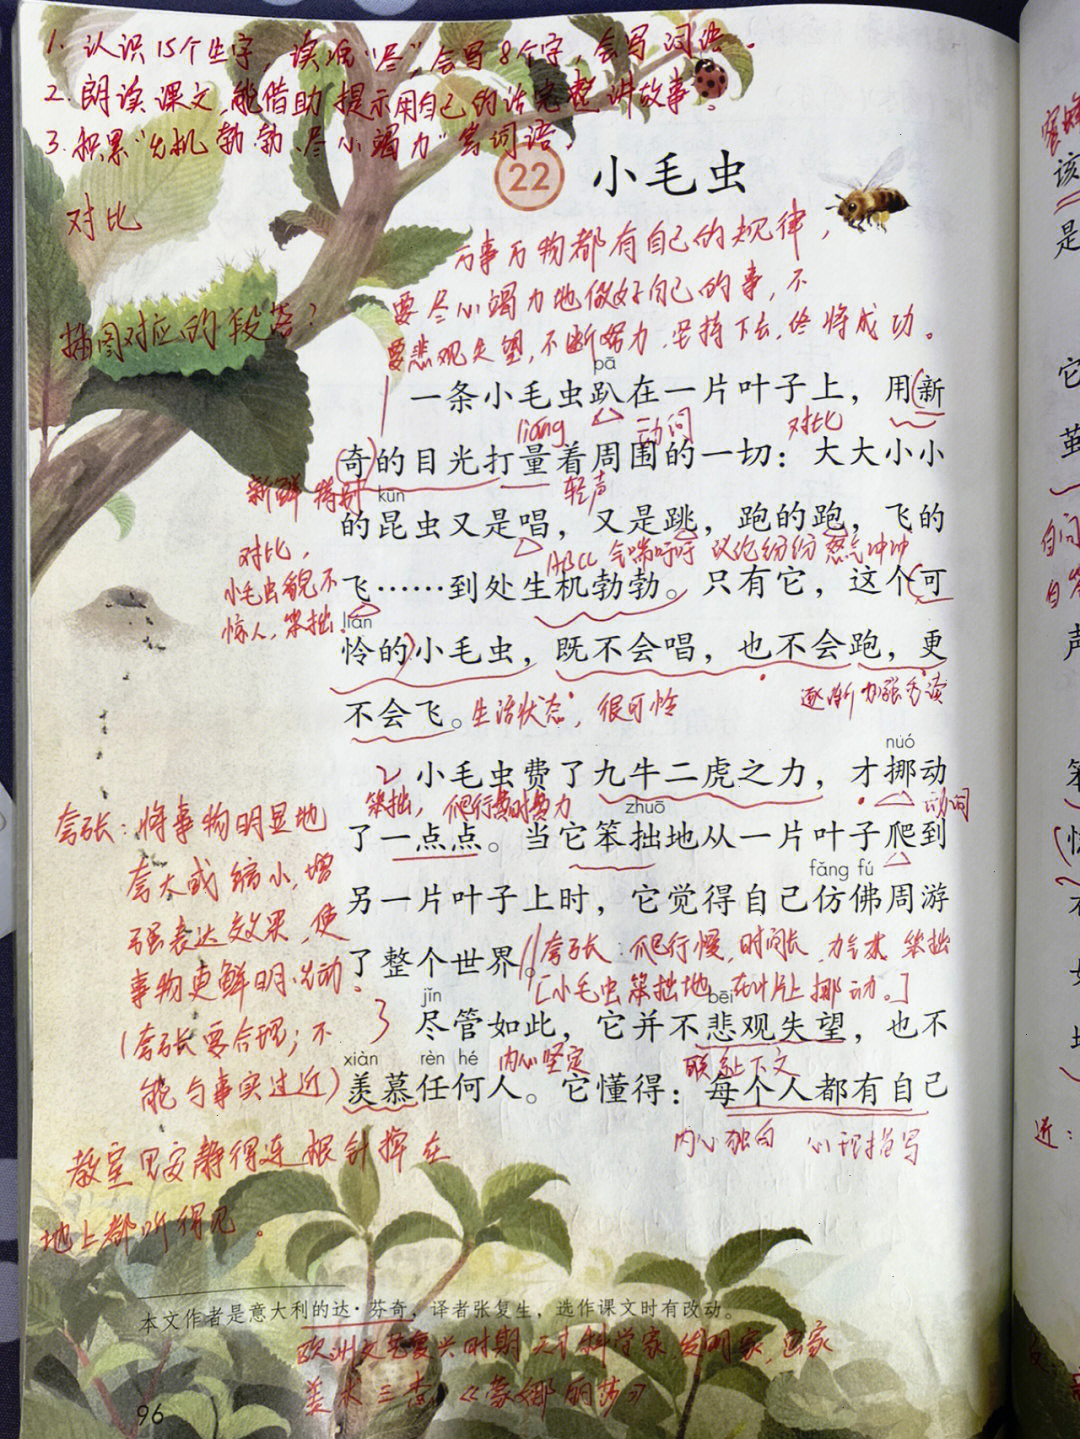 1. 认识15个生字，读准“尽”，会写8个字，会写词语。
2. 朗读课文，能借助提示用自己的话完整讲故事。
3. 积累“生机勃勃、尽心竭力”等词语。
22 小毛虫
对比
万事万物都有自己的规律，
要尽心竭力地做好自己的事，不
要悲观失望，不断努力，坚持下去，终将成功。
插图对应的段落？
pā
1 一条小毛虫趴在一片叶子上，用(新
liàng 动词 对比
奇)的目光打量着周围的一切：大大小小
新鲜 特别 kūn 轻声
的昆虫又是唱，又是跳，跑的跑，飞的
对比， ABCC 气喘吁吁 议论纷纷 怒气冲冲
小毛虫貌不
飞……到处生机勃勃。只有它，这个(可
惊人，笨拙。 lián
怜的)小毛虫，既不会唱，也不会跑，更
逐渐加强语气读
不会飞。生活状态，很可怜
nuó
2 小毛虫费了九牛二虎之力，才挪动
笨拙，爬行费时费力 zhuō 动词
了一点点。当它笨拙地从一片叶子爬到
fǎng fú
另一片叶子上时，它觉得自己仿佛周游
了整个世界。 夸张 爬行慢，时间长，力气大 笨拙
[小毛虫笨拙地 在叶片上挪动。]
夸张：将事物明显地
夸大或缩小，增
强表达效果，使
事物更鲜明生动。
(夸张要合理；不
能与事实过近)
jǐn bēi
3 尽管如此，它并不悲观失望，也不
xiàn rèn hé 内心坚定 联系上下文
羡慕任何人。它懂得：每个人都有自己
内心独白 心理描写
教室里安静得连根针掉在
地上都听得见。
本文作者是意大利的达·芬奇，译者张复生，选作课文时有改动。
欧洲文艺复兴时期 天才科学家、发明家、画家
美术三杰 《蒙娜丽莎》
96